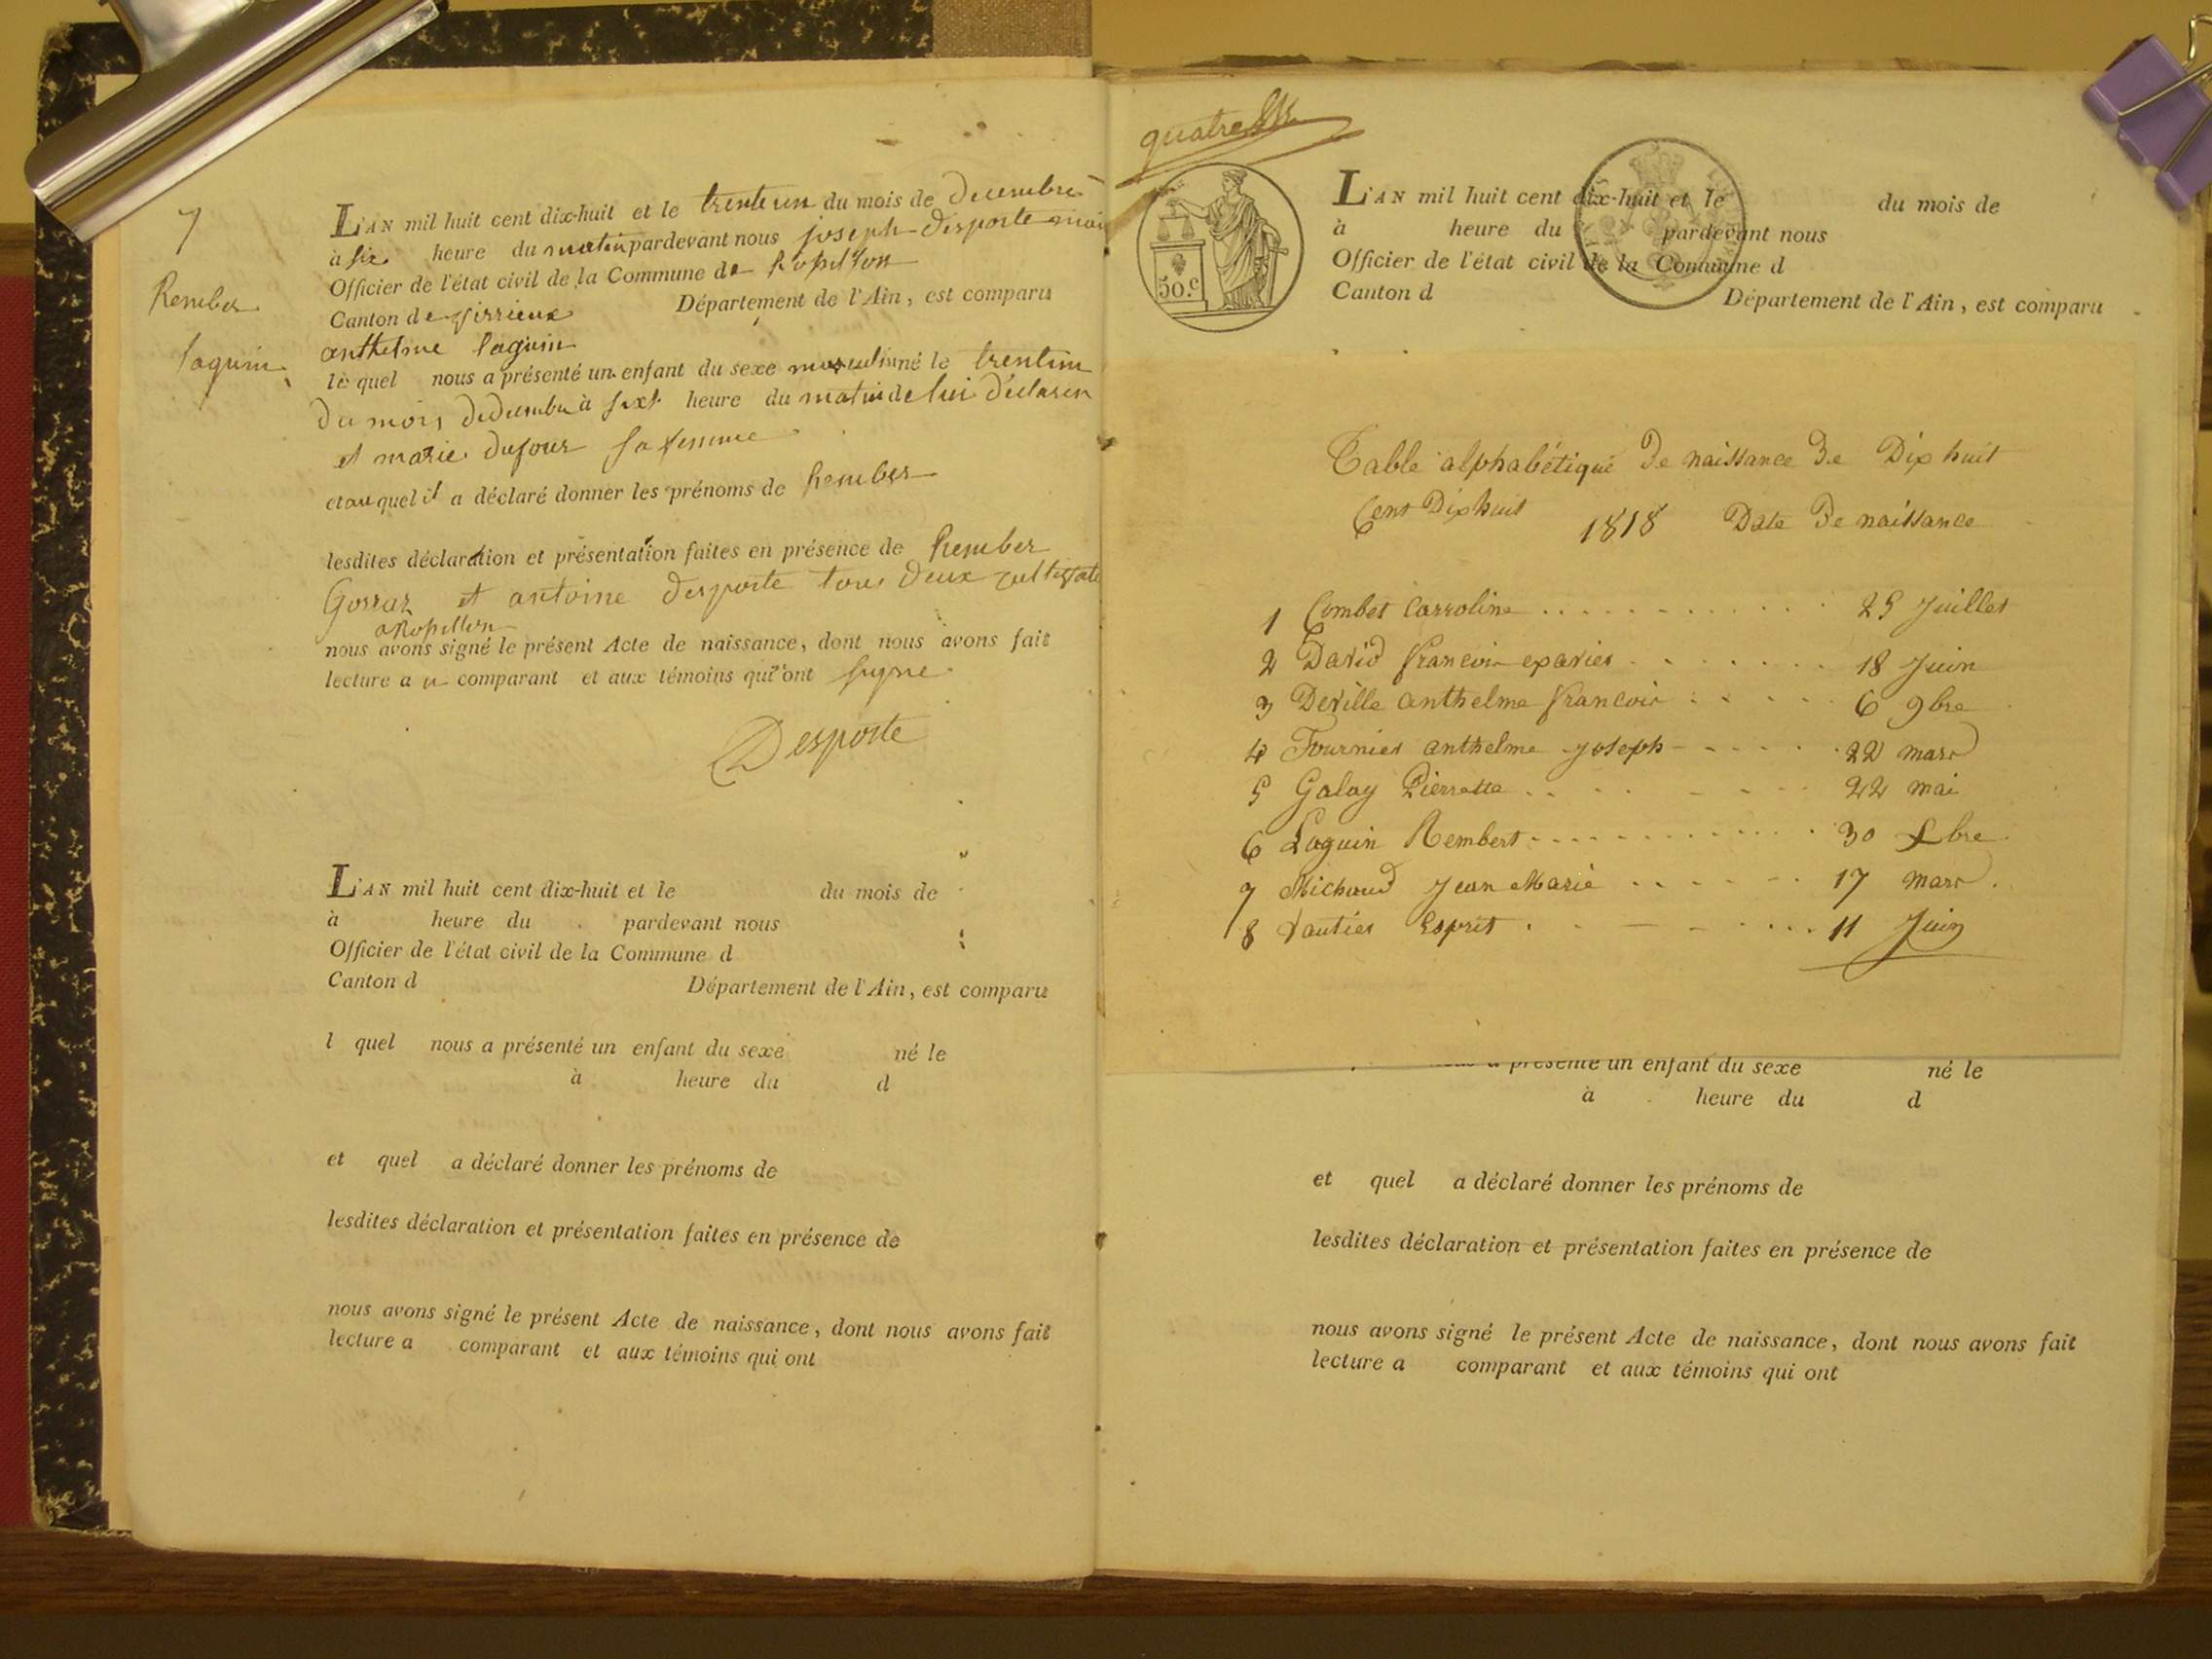 7
Rember
laguin
L'AN mil huit cent dix-huit et le trenteun du mois de decembre
à six heure du matin pardevant nous joseph desporte mair
Officier de l'état civil de la Commune de Ropillion
Canton de Virrieux Département de l'Ain, est comparu
anthelme laguin
le quel nous a présenté un enfant du sexe masculin né le trentun
du mois dedecembre à six heure du matin de lui declaren
et marie dufour sa femme
et au quel il a déclaré donner les prénoms de Rember
lesdites déclaration et présentation faites en présence de Rember
Gorraz et antoine desporte tous deux
nous avons signé le présent Acte de naissance, dont nous avons fait
lecture a u comparant et aux témoins qui ont signe
Desporte
L'AN mil huit cent dix-huit et le du mois de
à heure du pardevant nous
Officier de l'état civil de la Commune d
Canton d Département de l'Ain, est comparu
l quel nous a présenté un enfant du sexe né le
à heure du d
et quel a déclaré donner les prénoms de
lesdites déclaration et présentation faites en présence de
nous avons signé le présent Acte de naissance, dont nous avons fait
lecture a comparant et aux témoins qui ont
quatre
50.c
L'AN mil huit cent dix-huit et le du mois de
à heure du pardevant nous
Officier de l'état civil de la Commune d
Canton d Département de l'Ain, est comparu
Table alphabétique De naissance De Dix huit
Cent Dixhuit 1818 Date De naissance
1 Combet Carroline 25 Juillet
2 David francois exavier 18 Juin
3 Deville anthelme francois 6 9bre
4 Fournier anthelme joseph 22 mars
5 Galay Pierrette 22 mai
6 Laguin Rembert 30 Xbre
7 Michaud Jean Marie 17 mars
8 Vautier Esprit 11 Juin
a présenté un enfant du sexe né le
à heure du d
et quel a déclaré donner les prénoms de
lesdites déclaration et présentation faites en présence de
nous avons signé le présent Acte de naissance, dont nous avons fait
lecture a comparant et aux témoins qui ont